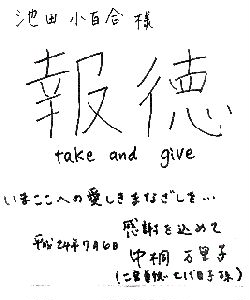 池田 小百合 様
報徳
take and give
いまここへの愛しきまなざしを…
感謝を込めて
平成24年7月6日
中桐 万里子
(二宮尊徳 七代目子孫)